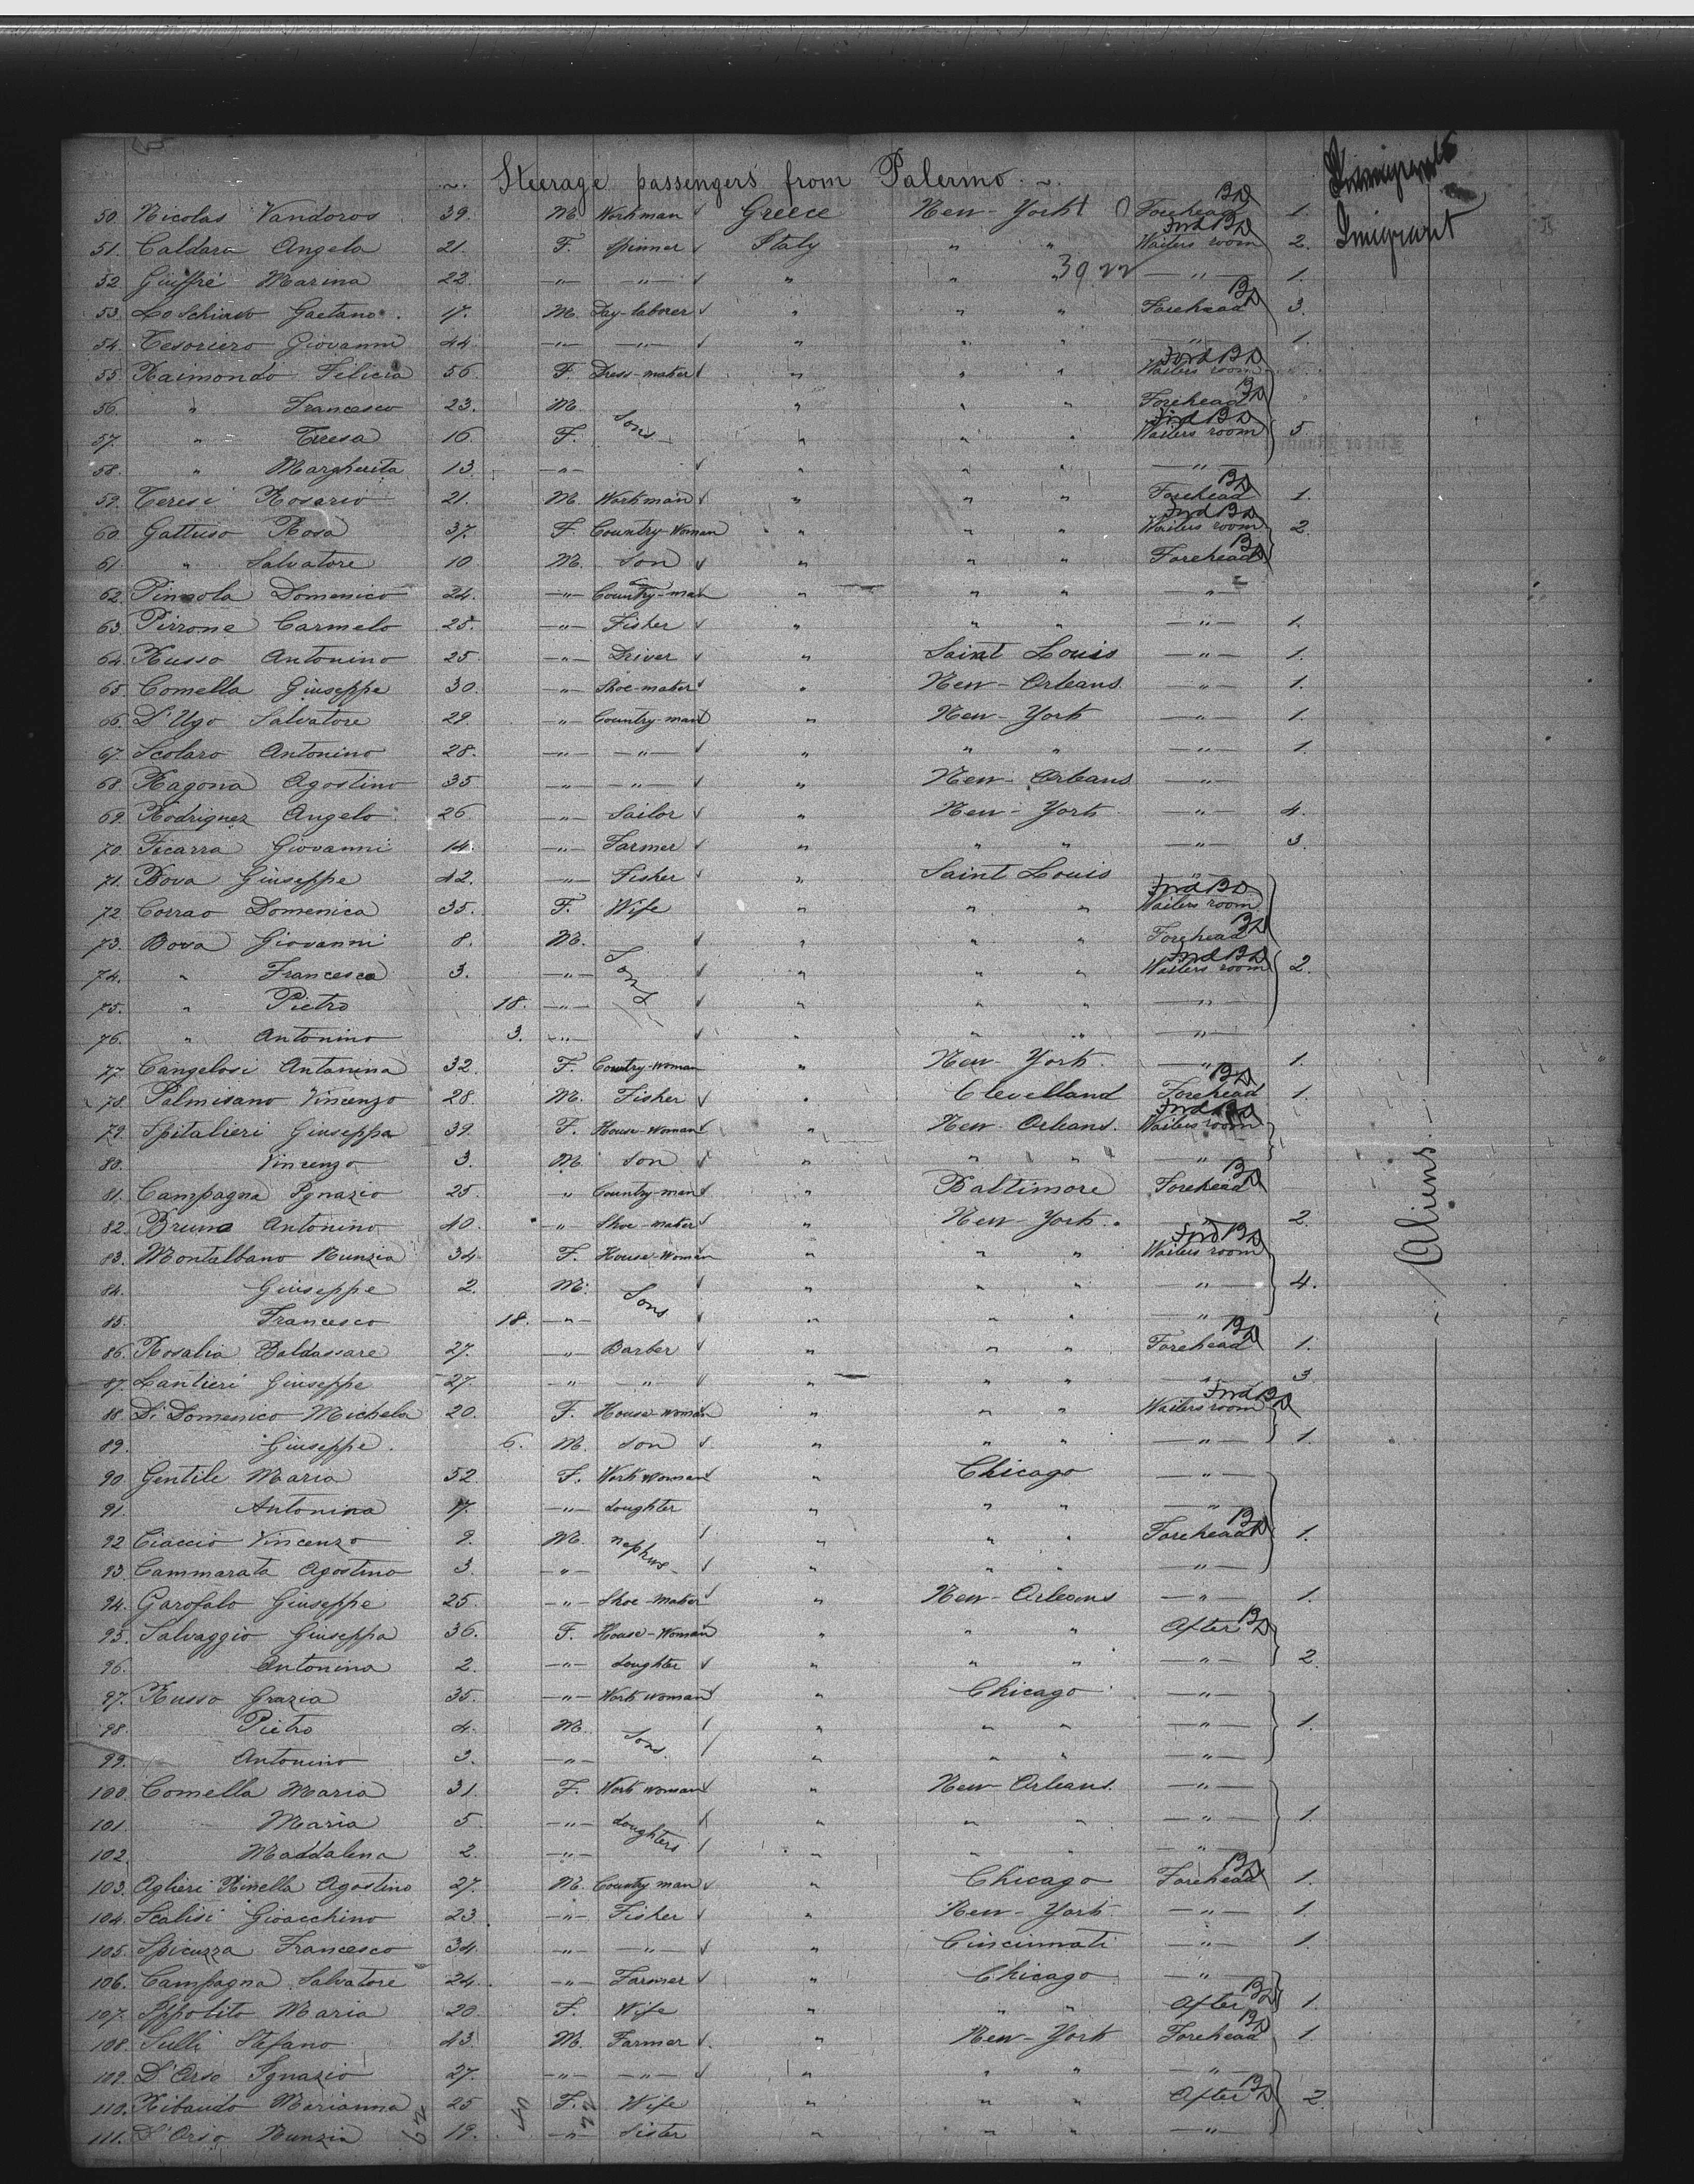 ~. Steerage passengers from Palermo. ~.
Immigrants
50. Nicolas Vandoros 39. M. Workman Greece New-York Forehead BD 1. Imigrant
51. Caldara Angela 21. F. Spinner Italy " " Fwd BD Waiters room 2.
52. Giuffrè Marina 22. —"— —"— " " " 39 22 —"— 1.
53. Lo Schiavo Gaetano. 17. M. Day-laborer " " " Forehead BD 3.
54. Tesoriero Giovanni 44. —"— —"— " " " —"— 1.
55. Raimondo Felicia 56. F. Dress-maker " " " Fwd BD Waiters room
56. " Francesco 23. M. Sons " " " Forehead BD
57. " Teresa 16. F. " " " Fwd BD Waiters room 5
58. " Margherita 13. —"— " " " —"—
59. Teresi Rosario 21. M. Workman " " " Forehead BD 1.
60. Gattuso Rosa 37. F. Country-Woman " " " Fwd BD Waiters room 2.
61. " Salvatore 10 M. Son " " " Forehead BD
62. Domenico 24. —"— Country-man " " " —"—
63. Pirrone Carmelo 25. —"— Fisher " " " —"— 1.
64. Russo Antonino 25. —"— Driver " Saint Louis —"— 1.
65. Comella Giuseppe 30. —"— Shoe-maker " New-Orleans. —"— 1.
66. D'Ugo Salvatore 29. —"— Country-man " New-York —"— 1.
67. Scolaro Antonino 28. —"— —"— " " " —"— 1.
68. Ragona Agostino 35 —"— —"— " New-Orleans —"—
69. Rodriguez Angelo 26 —"— Sailor " New-York —"— 4.
70. Ficarra Giovanni 14. —"— Farmer " " " —"— 3.
71. Bova Giuseppe 42. —"— Fisher " Saint Louis "
72. Corrao Domenica 35. F. Wife " " " Fwd BD Waiters room
73. Bova Giovanni 8. M. Sons " " " Forehead BD
74. " Francesca 3. —"— " " " Fwd BD Waiters room 2.
75. " Pietro 18. —"— " " " —"—
76. " Antonino 3. —"— " " " —"—
77. Cangelosi Antonina 32. F. Country-woman " New-York —"— 1.
78. Palmisano Vincenzo 28. M. Fisher " Clevelland Forehead BD 1.
79. Spitalieri Giuseppa 39. F. House-Woman " New-Orleans. Fwd BD Waiters room
80. Vincenzo 3. M. Son " " " —"—
81. Campagna Ignazio 25. " Country-man " Baltimore Forehead BD
82. Bruno Antonino 40. " Shoe-maker " New-York. " 2.
83. Montalbano Nunzia 34 F. House-Woman " " " Fwd BD Waiters room
84. Giuseppe 2. M. Sons " " " —"— 4.
85. Francesco 18. —"— " " " —"—
86. Rosalia Baldassare 27. " Barber " " " Forehead BD 1.
87. Lantieri Giuseppe 27. " " " " " —"— 3
88. Di Domenico Michela 20. F. House-woman " " " Fwd BD Waiters room
89. Giuseppe. 6. M. Son " " " —"— 1.
90. Gentile Maria 52. F. Work woman " Chicago —"—
91. Antonina 17. —"— doughter " " " —"—
92. Ciaccio Vincenzo 9. M. nephws " " " Forehead BD 1.
93. Cammarata Agostino 3. —"— " " " —"—
94. Garofalo Giuseppe 25. —"— Shoe-maker " New-Orleans —"— 1.
95. Salvaggio Giuseppa 36. F. House-Woman " " " After BD
96. Antonina 2. —"— doughter " " " —"— 2.
97. Russo Grazia 35. —"— Work woman " Chicago —"—
98. Pietro 4. M. Sons " " " —"— 1.
99. Antonino 3. —"— " " " —"—
100. Comella Maria 31. F. Work woman " New-Orleans. —"—
101. Maria 5 —"— doughters " " " —"— 1.
102. Maddalena 2. —"— " —"—
103. Aglieri Rinella Agostino 27. M. Country man " Chicago Forehead BD 1.
104. Scalisi Gioacchino 23. —"— Fisher " New-York —"— 1.
105. Spicuzza Francesco 34. —"— —"— " Cincinnati —"— 1.
106. Campagna Salvatore 24. —"— Farmer " Chicago —"—
107. Ippolito Maria 20. F. Wife " " " After BD 1.
108. Sulli Stefano 43. M. Farmer " New-York Forehead BD 1.
109. D'Orso Ignazio 27. —"— —"— " " " —"—
110. Ribaudo Marianna 25 F. Wife " " " After BD 2.
111. D'Orso Nunzia 19. —"— Sister " " " —"—
Aliens